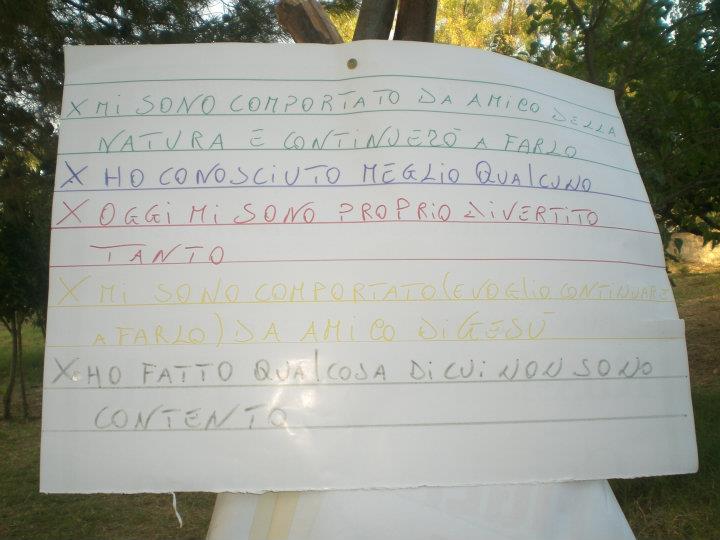 X MI SONO COMPORTATO DA AMICO DELLA
NATURA E CONTINUERÒ A FARLO
X HO CONOSCIUTO MEGLIO QUALCUNO
X OGGI MI SONO PROPRIO DIVERTITO
TANTO
X MI SONO COMPORTATO (E VOGLIO CONTINUARE
A FARLO) DA AMICO DI GESÙ
X HO FATTO QUALCOSA DI CUI NON SONO
CONTENTO